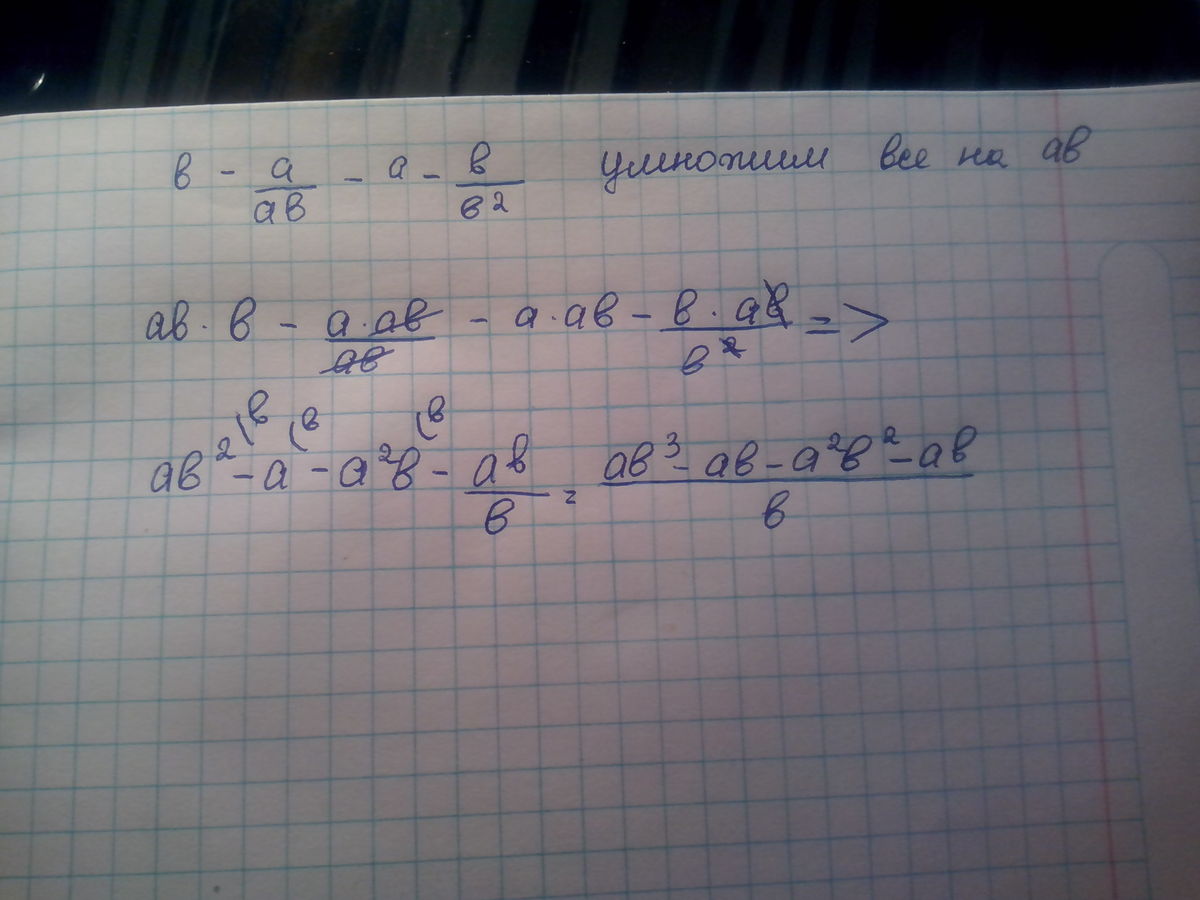 в - a/aв - a - в/в² умножим все на aв
aв · в - a·aв/aв - a·aв - в·aв/в² =>
в в в
aв² - a - a²в - aв/в = aв³ - aв - a²в² - aв/в